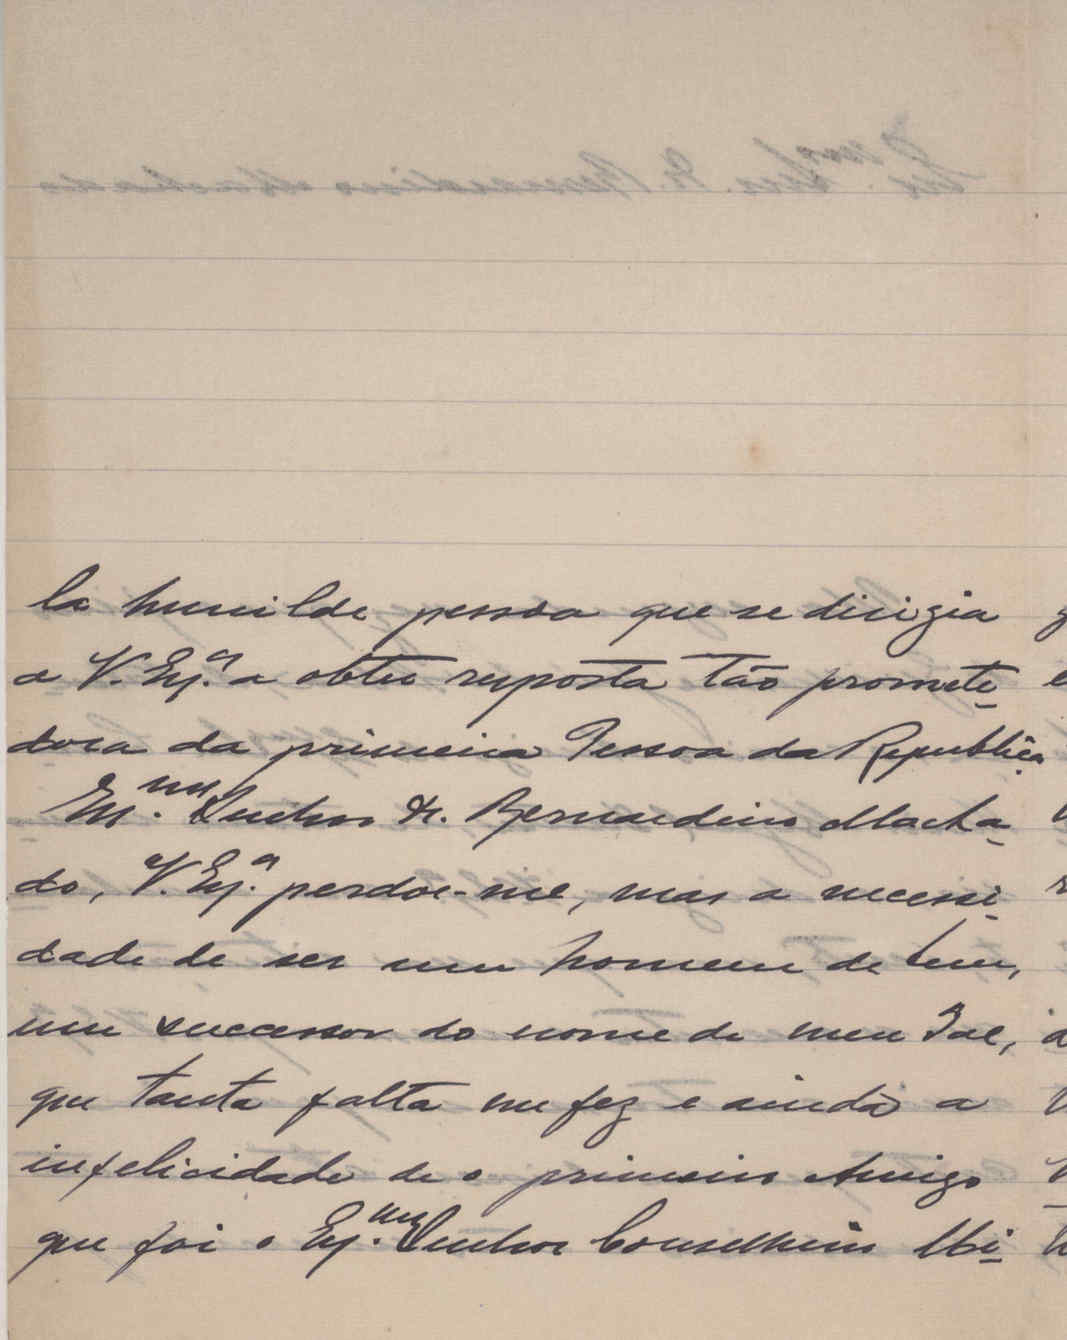 la humilde pessoa que se dirigia
a V. Exª. a obter resposta tão promete-
dora da primeira Pessoa da Republica
Exmo. Senhor Dr. Bernardino Macha-
do, V. Exª. perdoe-me, mas a necessi-
dade de ser um homem de bem,
um successor do nome de meu Pae,
que tanta falta me fez e ainda a
infelicidade de o primeiro Amigo
que foi o Exmo. Senhor Conselheiro